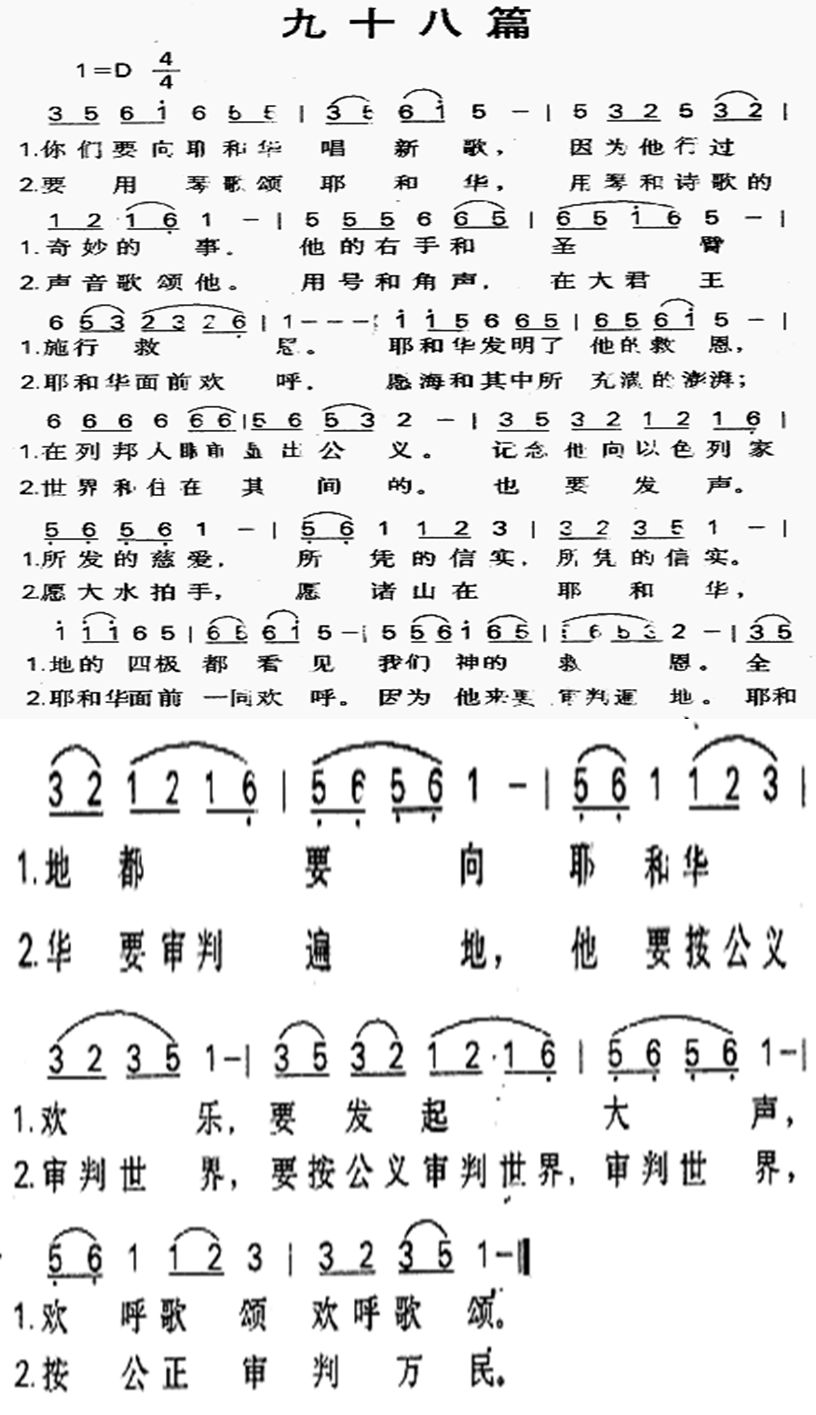 九十八篇
1=D 4/4
3 5 6 i 6 6 5 | 3 5 6 i 5 － | 5 3 2 5 3 2 |
1.你们要向耶和华 唱 新 歌， 因为他行过
2.要 用 琴歌颂 耶 和 华， 用琴和诗歌的
1 2 · 1 6 1 － | 5 5 5 6 6 5 | 6 5 i 6 5 － |
1.奇妙的 事． 他的右手和 圣 臂
2.声音歌颂他。 用号和角声， 在大君 王
6 5 3 2 3 2 6 | 1 － － － | i i 5 6 6 5 | 6 5 6 i 5 － |
1.施行 救 恩。 耶和华发明了 他的救恩，
2.耶和华面前欢 呼． 愿海和其中所 充满的澎湃；
6 6 6 6 6 6 | 5 6 5 3 2 － | 3 5 3 2 1 2 1 6 |
1.在列邦人眼前显出公 义。 记念他向以色列家
2.世界和住在 其 间 的。 也 要 发 声。
5 6 5 6 1 － | 5 6 1 1 2 3 | 3 2 3 5 1 － |
1.所发的慈爱， 所 凭的信实，所凭的信实。
2.愿大水拍手， 愿 诸山在 耶 和 华，
i i i 6 5 | 6 5 6 i 5 － | 5 5 6 i 6 5 | i 6 5 3 2 － | 3 5
1.地的 四极 都 看 见 我们 神的 救 恩。 全
2.耶和华面前 一同欢 呼。 因为 他来要 审判遍 地。 耶和
3 2 1 2 1 6 | 5 6 5 6 1 － | 5 6 1 1 2 3 |
1.地 都 要 向 耶 和华
2.华 要审判 遍 地， 他 要按公义
3 2 3 5 1－| 3 5 3 2 1 2·1 6 | 5 6 5 6 1－|
1.欢 乐，要 发 起 大 声，
2.审判世 界，要按公义审判世界，审判世 界，
5 6 1 1 2 3 | 3 2 3 5 1－‖
1.欢 呼歌 颂 欢呼歌 颂。
2.按 公正 审 判 万 民。